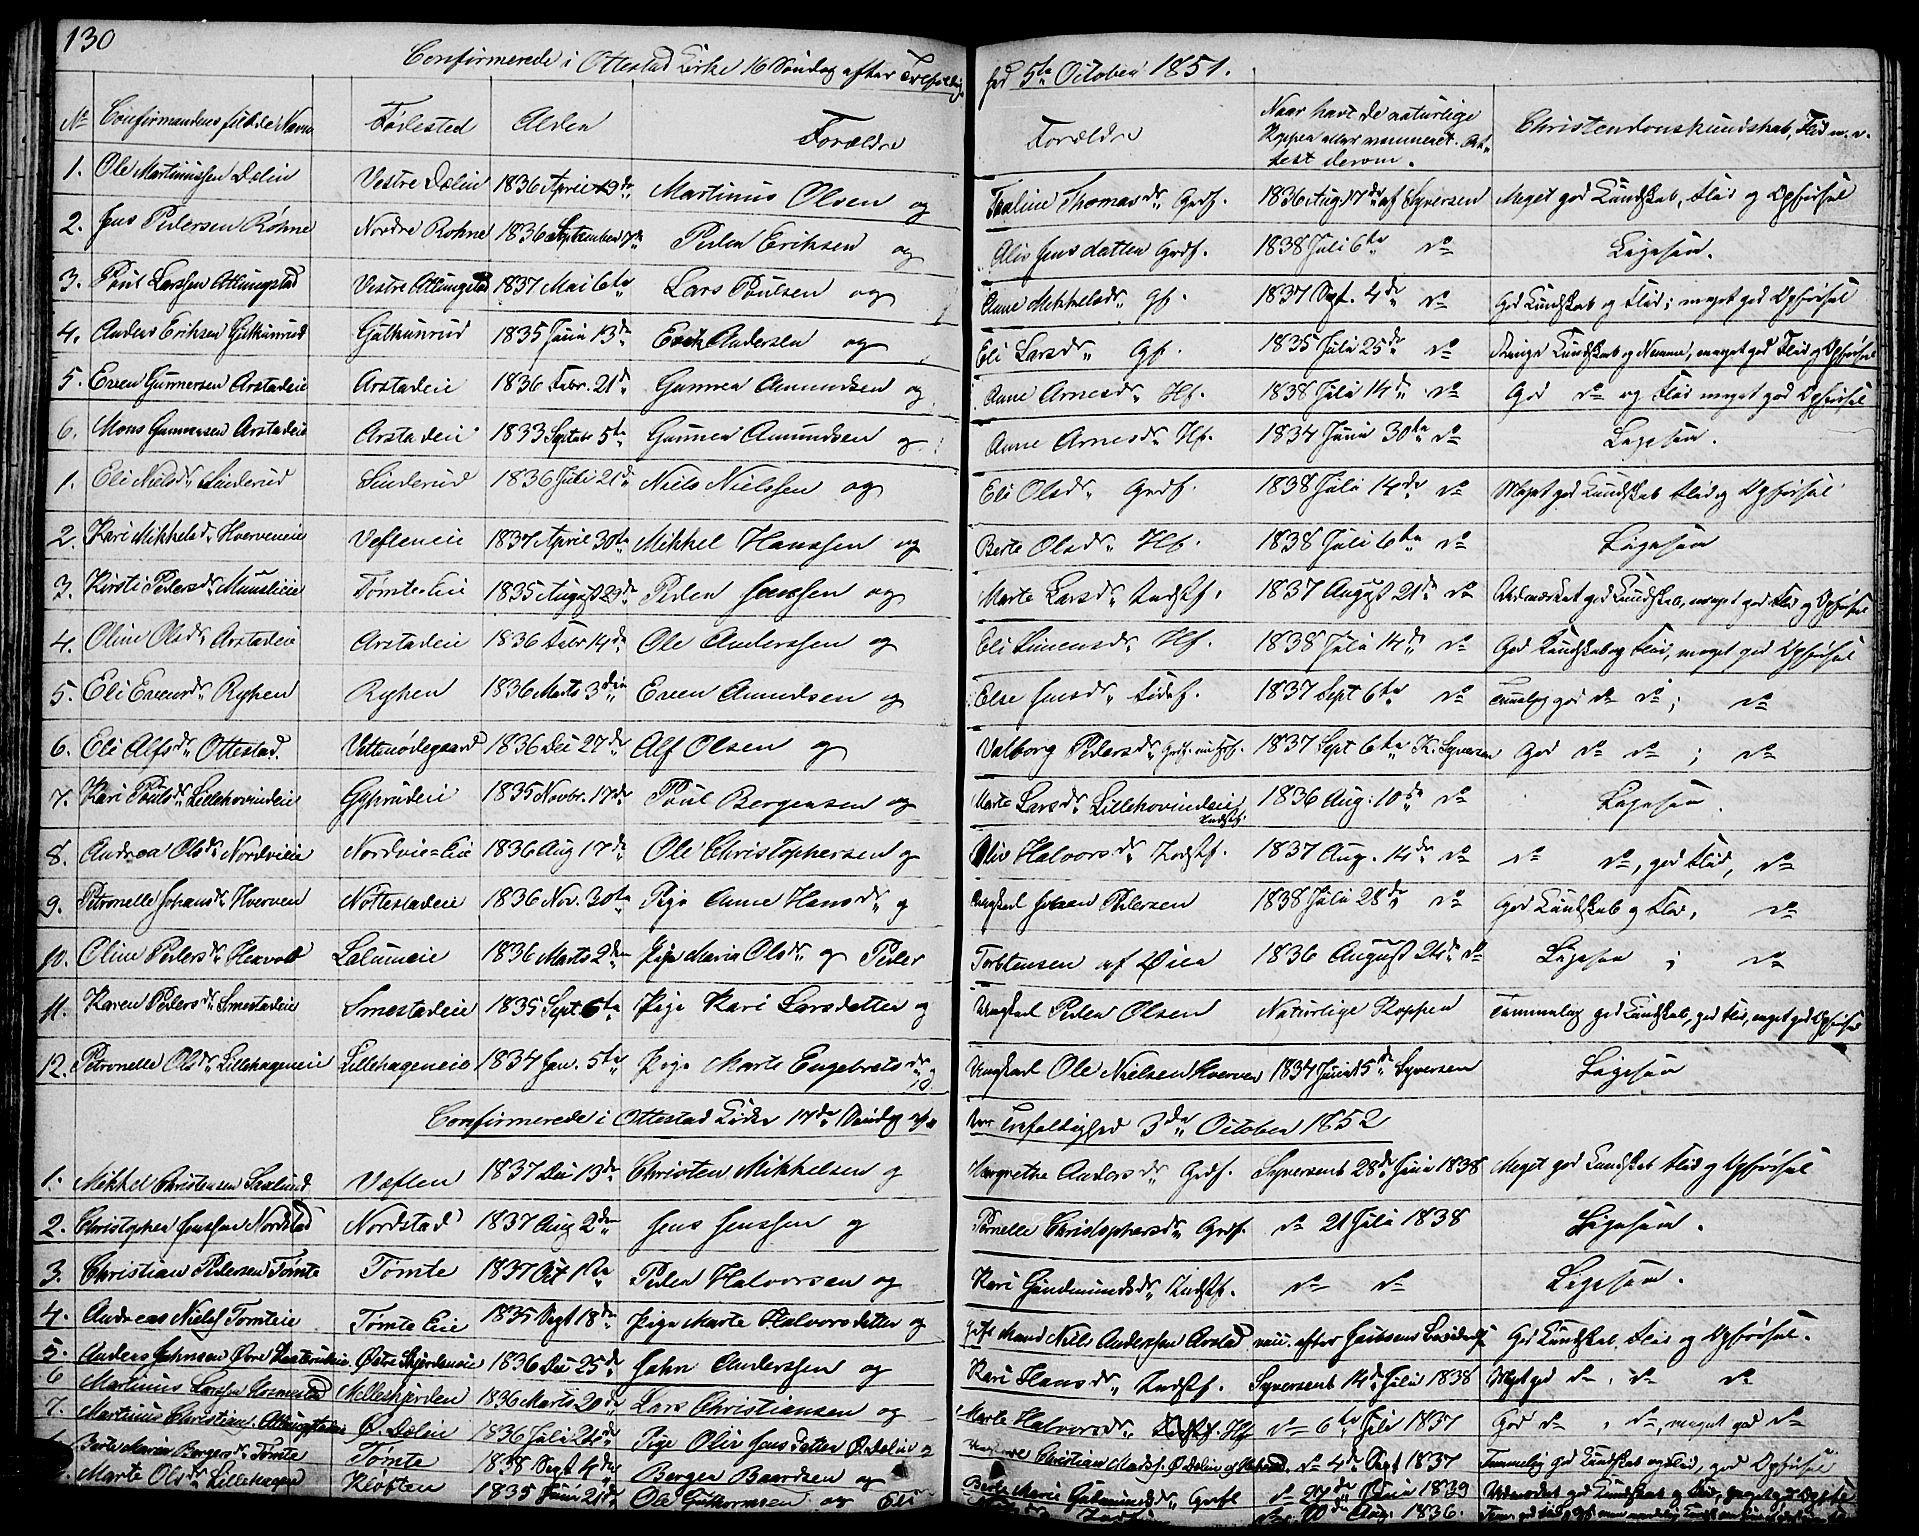 130
Confirmerede i Ottestad Kirke 16 Søndag efter Trefoldig-
hed 5te October 1851.
No Confirmandens fulde Navn Fødested Alder Forældre Forældre Naar havt de naturlige Kopper eller vaccineret. At- test derom. Christendomskundskab, Flid m. v.
1. Ole Martinussen Dælin Vestre Dælin 1836 April 19de Martinus Olsen og Thomasdr Grdf. 1836 Aug. 17de af Syversen Meget god Kundskab, Flid og Opførsel
2. Jens Pedersen Røhne Nordre Røhne 1836 September 7de Peder Eriksen og Oliv Jensdatter Grdf. 1838 Juli 6te do Ligesaa.
3. Poul Larssen Atlungstad Vestre Atlungstad 1837 Mai 6te Lars Poulsen og Anne Mikkelsdr Gf. 1837 Sept. 4de do God Kundskab og Flid; meget god Opførsel
4. Anders Eriksen Gulkunrud Gulkunrud 1835 Juni 13de Erik Andersen og Eli Larsdr Gf. 1835 Juli 25de do Kundskab og Nemme, meget god Flid og Opførsel
5. Even Gunnersen Arstadeie Arstadeie 1836 Febr. 21de Gunner Amundsen og Anne Arnesdr Hf. 1838 Juli 14de do God do og Flid meget god Opførsel
6. Mons Gunnersen Arstadeie Arstadeie 1833 Septbr 5te Gunner Amundsen og Anne Arnesdr Hf. 1834 Juni 30te do Ligesaa.
1. Eli Nielsdr Sinderud Sinderud 1836 Juli 21de Niels Nielssen og Eli Olsdr Grdf. 1838 Juli 14de do Meget god Kundskab Flid og Opførsel
2. Kari Mikkelsdr Hverveneie Vefleneie 1837 April 30te Mikkel Hanssen og Berte Olsdr Hf. 1838 Juli 6te do Ligesaa
3. Kirsti Pedersdr Tomte-Eie 1835 August 29de Peder Jenssen og Marte Larsdr Indstf. 1837 August 21de do Udmærket god Kundskab, meget god Flid og Opførsel
4. Oline Olsdr Arstadeie Arstadeie 1836 Febr 14de Ole Anderssen og Eli Simensdr Hf. 1838 Juli 14de do God Kundskab og Flid, meget god Opførsel
5. Eli Evensdr Ryhen Ryhen 1836 Marts 3die Even Amundsen og Else Jensdr 1837 Sept 6te do Temmelig god do do; do
6. Eli Alfsdr Ottestad. 1836 Dec 27de Alf Olsen og Valborg Pedersdr 1837 Sept 6te K. Syversen God do do; do
7. Kari Poulsdr Lillehovindeie 1835 Novbr. 17de Poul Bergersen og Marte Larsdr Lillehovindeie Indstf. 1836 Aug. 10de do Ligesaa.
8. Andrea Olsdr Nordvieie Nordvie=Eie 1836 Aug 17de Ole Christophersen og Oliv Halvorsdr Indstf. 1837 Aug. 14de do do do, god Flid, do
9. Petronelle Johansdr Hverven Nottestadeie 1836 Nov. 30te Pige Anne Hansdr og Ungkarl Johan Pedersen 1838 Juli 28de do God Kundskab og Flid, do
10. Oline Pedersdr Lalumeie 1836 Marts 2den Pige Maria Olsdr og Peder Torstensen af Øien 1836 August 24de do Ligesaa; do
11. Karen Pedersdr Smestadeie Smestadeie 1835 Sept. 6te Pige Kari Larsdatter og Ungkarl Peder Olsen Naturlige Kopper Temmelig god Kundskab, god Flid, meget god Opførsel
12. Petronelle Olsdr Lillehageneie Lillehageneie 1834 Jan. 5te Pige Marte Engebretsdr og Ungkarl Ole Nielsen Hverven 1834 Juni 15de Syversen Ligesaa
Confirmerede i Ottestad Kirke 17de Søndag efter Trefoldighed 3de October 1852
1. Mikkel Christensen Væflen 1837 Dec 13de Christen Mikkelsen og Margrethe Andersdr Grdf. Syversens 28de Juni 1838 Meget god Kundskab Flid og Opførsel
2. Christopher Jenssen Nordstad Nordstad 1837 Aug 2den Jens Jenssen og Pernelle Christophersdr Grdf. do 21 Juli 1838 Ligesaa.
3. Christian Pedersen Tomte Tomte 1837 Oct 1ste Peder Halvorsen og Kari Gudmundsdr Indstf. do do Ligesaa.
4. Andreas Nielss Tomteie Tomte Eie 1835 Sept 18de Pige Marte Halvorsdatter og Gift Mand Niels Anderssen Arstad God Kundskab, Flid og Opførsel.
5. Anders Johnsen Øvre 1836 Dec 25de John Anderssen og Kari Hansdr Indstf. Syversens 14de Juli 1838 Meget god do, do do
6 Martinus Larssen 1836 Marts 20de Lars Christiansen og Marte Halvorsdr Hf do 6te Juli 1837 God do, do, meget god do
7. Martinus Christians. Ø. Dælin 1836 Juli 24de Pige Oliv Jensdatter Ø. Dælin og Christian Mads. Ø. Dælin do 4de Sept 1837 Temmelig god Kundskab og Flid, god Opførsel
Berte Maria Bergersdr Tomte Tomte 1838 Sept 4de Berger Baardsen og Berte Marie Gudmundsdr Grdf do Juni 1839 Udmærket god Kundskab og Flid, meget god
Marte Olsdr Lillehagen Kloften 1835 Juni 21de Ole Guttormsen og Eli do Aug. 1836.